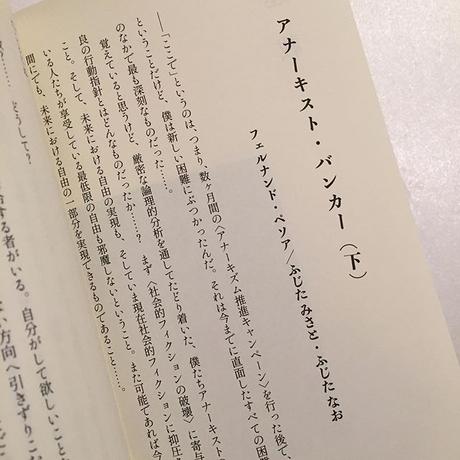 アナーキスト・バンカー(下)
フェルナンド・ペソア/ふじた みさと・ふじた なお
――「ここで」というのは、つまり、数ヶ月間の〈アナーキズム推進キャンペーン〉を行った後で、
ということだけど、僕は新しい困難にぶつかったんだ。それは今までに直面したすべての困難
のなかで最も深刻なものだった……。
覚えていると思うけど、厳密な論理的分析を通してたどり着いた、僕たちアナーキストの
良の行動指針とはどんなものだったか……? まず〈社会的フィクションの破壊〉に寄与
こと。そして、未来における自由の実現も、そしていま現在社会的フィクションに抑圧
いる人たちが享受している最低限の自由も邪魔しないということ。また可能であれば今
間にでも、未来における自由の一部分を実現できるものであること……。
どうして?
する者がいる。自分がして欲しいこと
方向へ引きずりこ